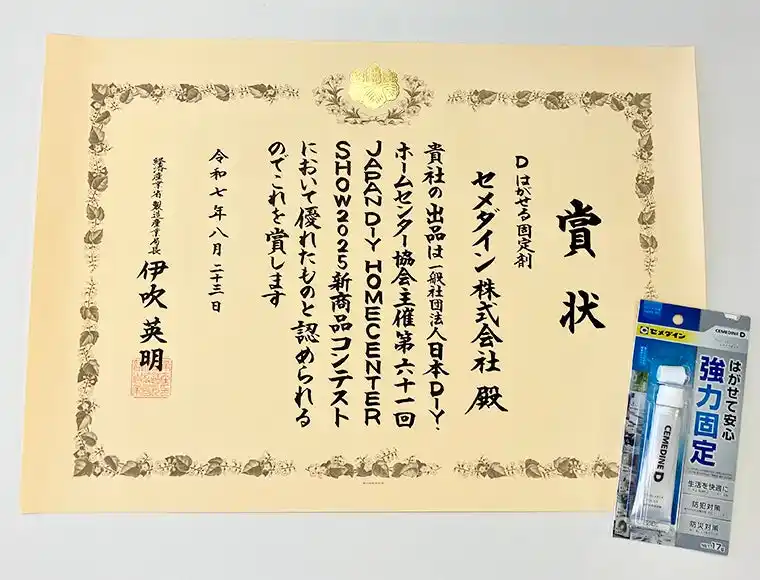 賞状
D はがせる固定剤
セメダイン株式会社 殿
貴社の出品は一般社団法人日本DIY・
ホームセンター協会主催第六十一回
JAPAN DIY HOMECENTER
SHOW2025新商品コンテスト
において優れたものと認められる
のでこれを賞します
令和七年八月二十三日
経済産業省 製造産業局長
伊吹英明
セメダイン
CEMEDINE D
はがせて安心
強力固定
CEMEDINE D
生活を快適に
防犯対策
防災対策
NET 17g